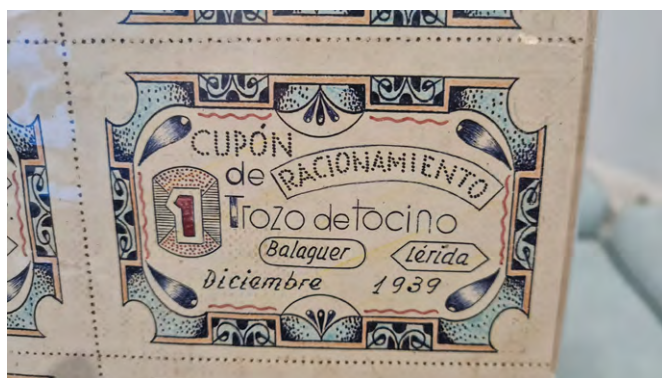 CUPÓN
de RACIONAMIENTO
1 Trozo de tocino
Balaguer Lérida
Diciembre 1939